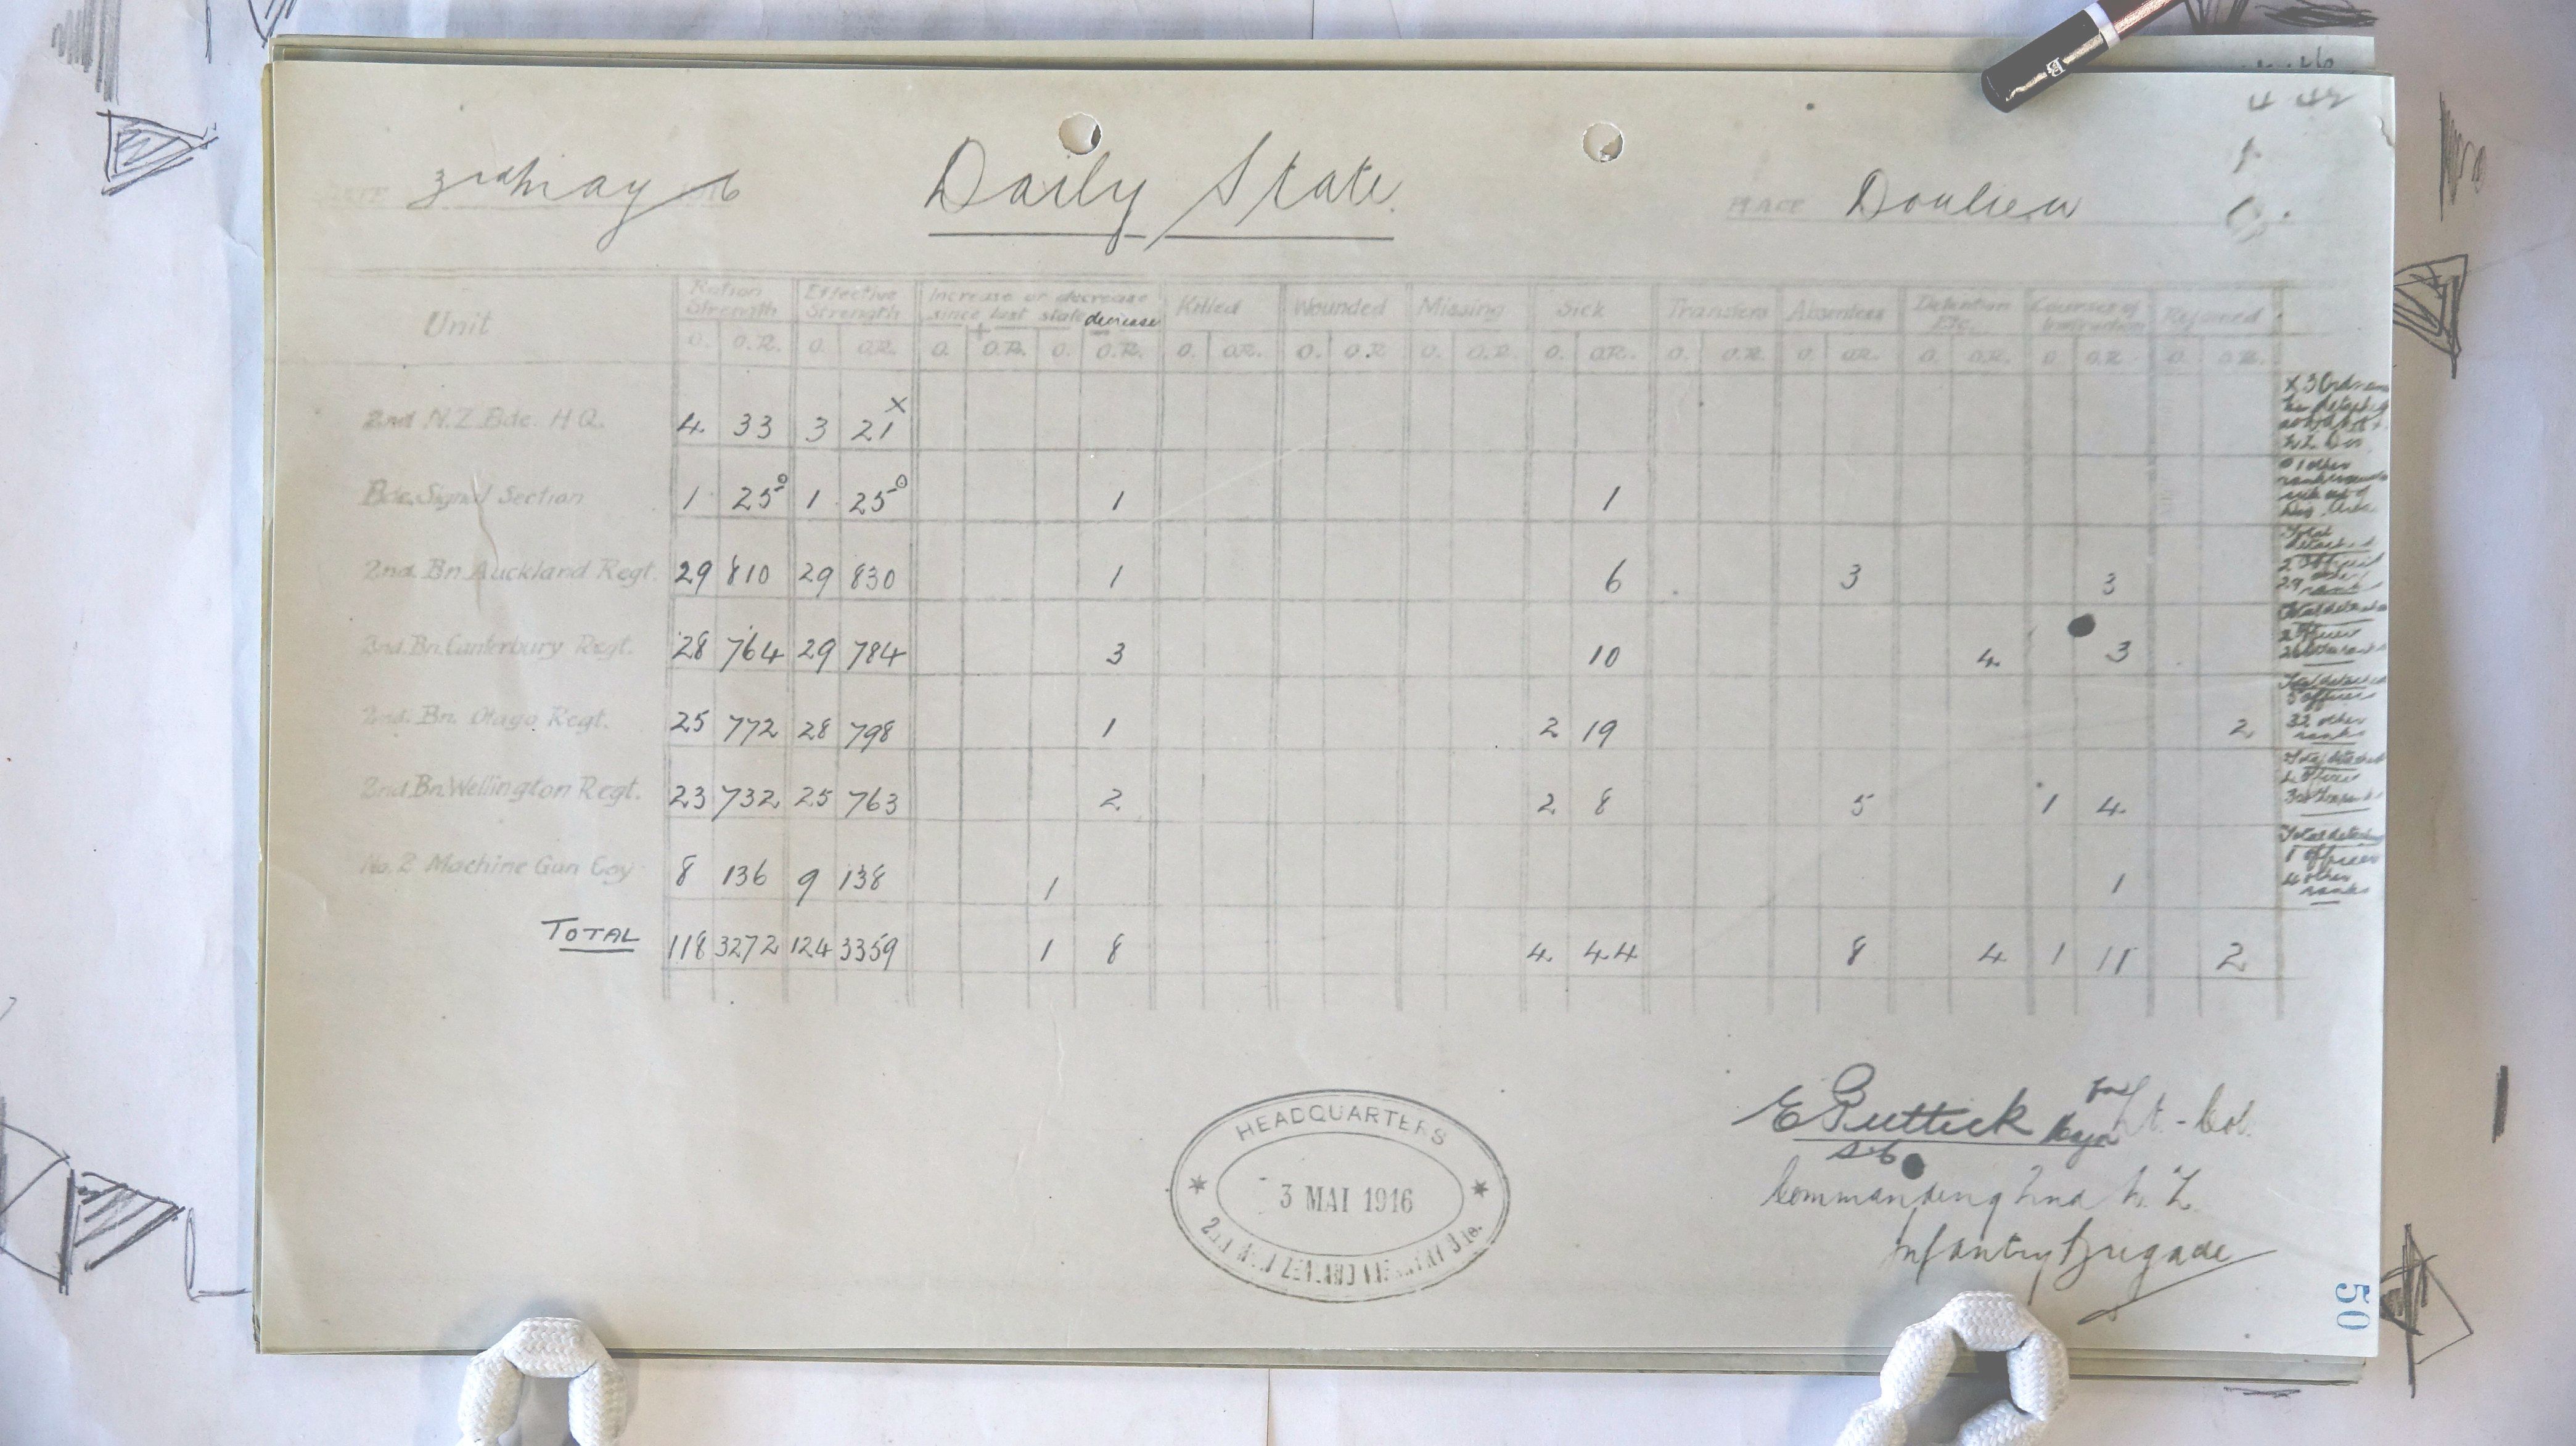 4 42
DATE 3rd May 16
Daily State.
PLACE Doulieu
Unit
Ration Strength
Effective Strength
Increase or decrease since last state
+
decrease
Killed
Wounded
Missing
Sick
Transfers
Absentees
Detention Etc.
Courses of Instruction
Rejoined
O. O.R. O. O.R. O. O.R. O. O.R. O. O.R. O. O.R. O. O.R. O. O.R. O. O.R. O. O.R. O. O.R. O. O.R. O. O.R.
2nd N.Z. Bde. H.Q. 4 33 3 21 x
Bde. Signal Section 1 25° 1 25° 1 1
2nd Bn Auckland Regt. 29 810 29 830 1 6 3 3
2nd. Bn. Canterbury Regt. 28 764 29 784 3 10 4 3
2nd. Bn. Otago Regt. 25 772 28 798 1 2 19 2
2nd. Bn. Wellington Regt. 23 732 25 763 2 2 8 5 1 4
No. 2 Machine Gun Coy 8 136 9 138 1 1
TOTAL 118 3272 124 3359 1 8 4 44 8 4 1 11 2
x 3
N.Z. Div
o 1 other
Total
detached
2 Officers
29 other
ranks
Total detached
2 Officers
Total detached
5 officers
32 other
ranks
Total detached
Total detached
1 officer
4 other
ranks
HEADQUARTERS
3 MAI 1916
2nd NEW ZEALAND INFANTRY Bde.
E Puttick Major for Lt.-Col.
Commanding 2nd N.Z.
Infantry Brigade
50
B